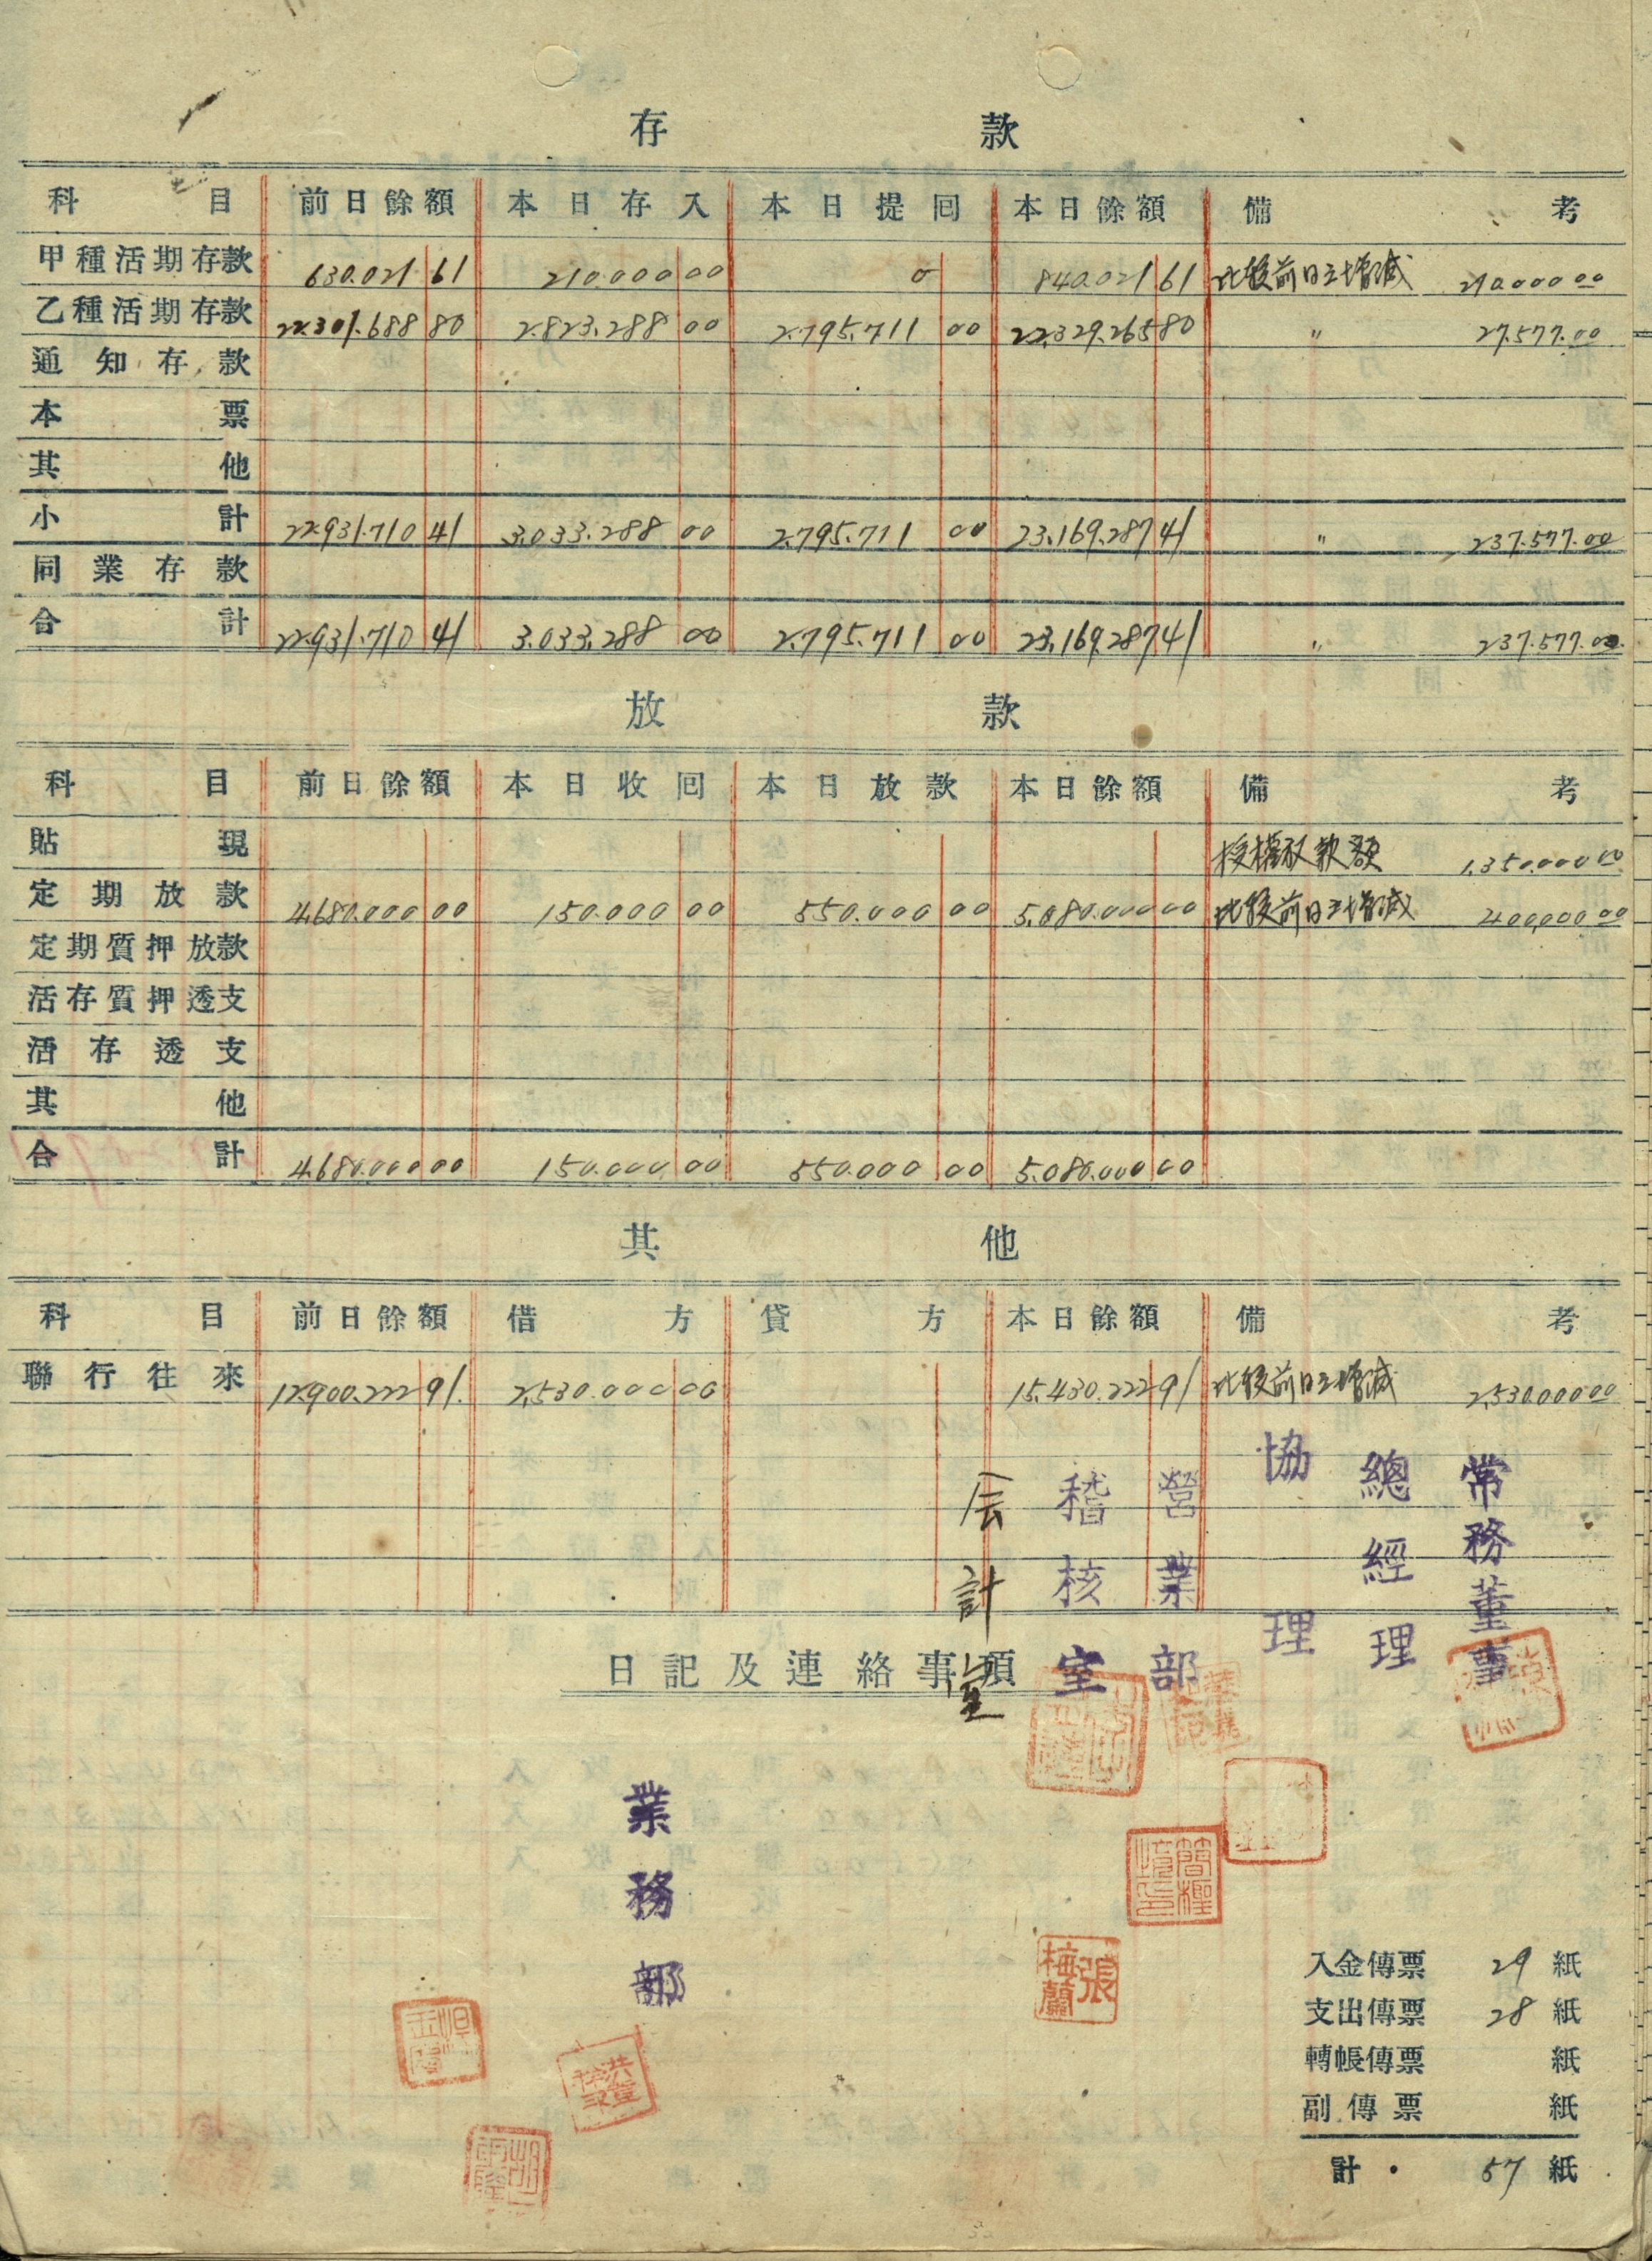 存 款
科目 前日餘額 本日存入 本日提回 本日餘額 備考
甲種活期存款 630.021 61 210.000 00 0 840.021 61 比較前日之增減 210.000 00
乙種活期存款 22.301.688 80 2.823.288 00 2.795.711 00 22.329.265 80 〃 27.577.00
通知存款
本票
其他
小計 22.931.710 41 3.033.288 00 2.795.711 00 23.169.287 41 〃 237.577.00
同業存款
合計 22.931.710 41 3.033.288 00 2.795.711 00 23.169.287 41 〃 237.577.00
放 款
科目 前日餘額 本日收回 本日放款 本日餘額 備考
貼現 授權放款額 1.350.000 00
定期放款 4.680.000 00 150.000 00 550.000 00 5.080.000 00 比較前日之增減 400.000 00
定期質押放款
活存質押透支
活存透支
其他
合計 4.680.000 00 150.000 00 550.000 00 5.080.000 00
其 他
科目 前日餘額 借方 貸方 本日餘額 備考
聯行往來 12.900.222 91 2.530.000 00 15.430.222 91 比較前日之增減 2.530.000 00
常務董事
總經理
協理
營業部
稽核室
会計室
日記及連絡事項
業務部
張梅馨
入金傳票 29 紙
支出傳票 28 紙
轉帳傳票 紙
副傳票 紙
計 57 紙